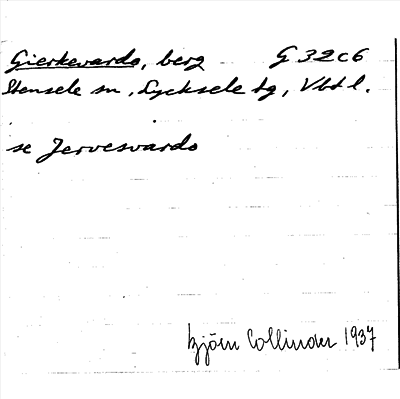 Gierkevardo, berg G 32c6
Stensele sn, Lycksele tg, Vbtl.
se Jervesvardo
Björn Collinder 1937